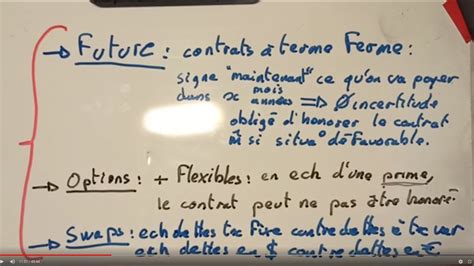 → Future : contrats à terme Ferme :
signe "maintenant" ce qu'on va payer
dans x mois années ⇒ Ø incertitude
obligé d'honorer le contrat
m̂ si situa° défavorable.
→ Options : + Flexibles : en ech d'une prime,
le contrat peut ne pas être honoré
→ Swaps : ech dettes tx fixe contre dettes à tx var
ech dettes en $ contre dettes en €